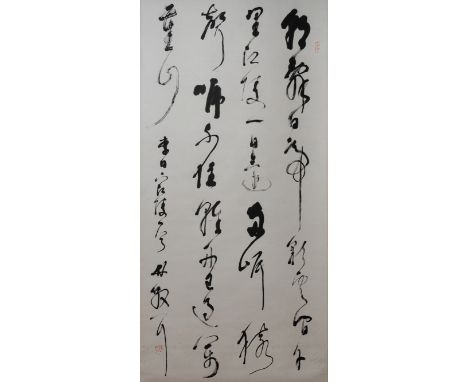 朝辭白帝彩雲間千
里江陵一日還兩岸猿
聲啼不住輕舟已過萬
重山
李白下江陵一首 林散耳